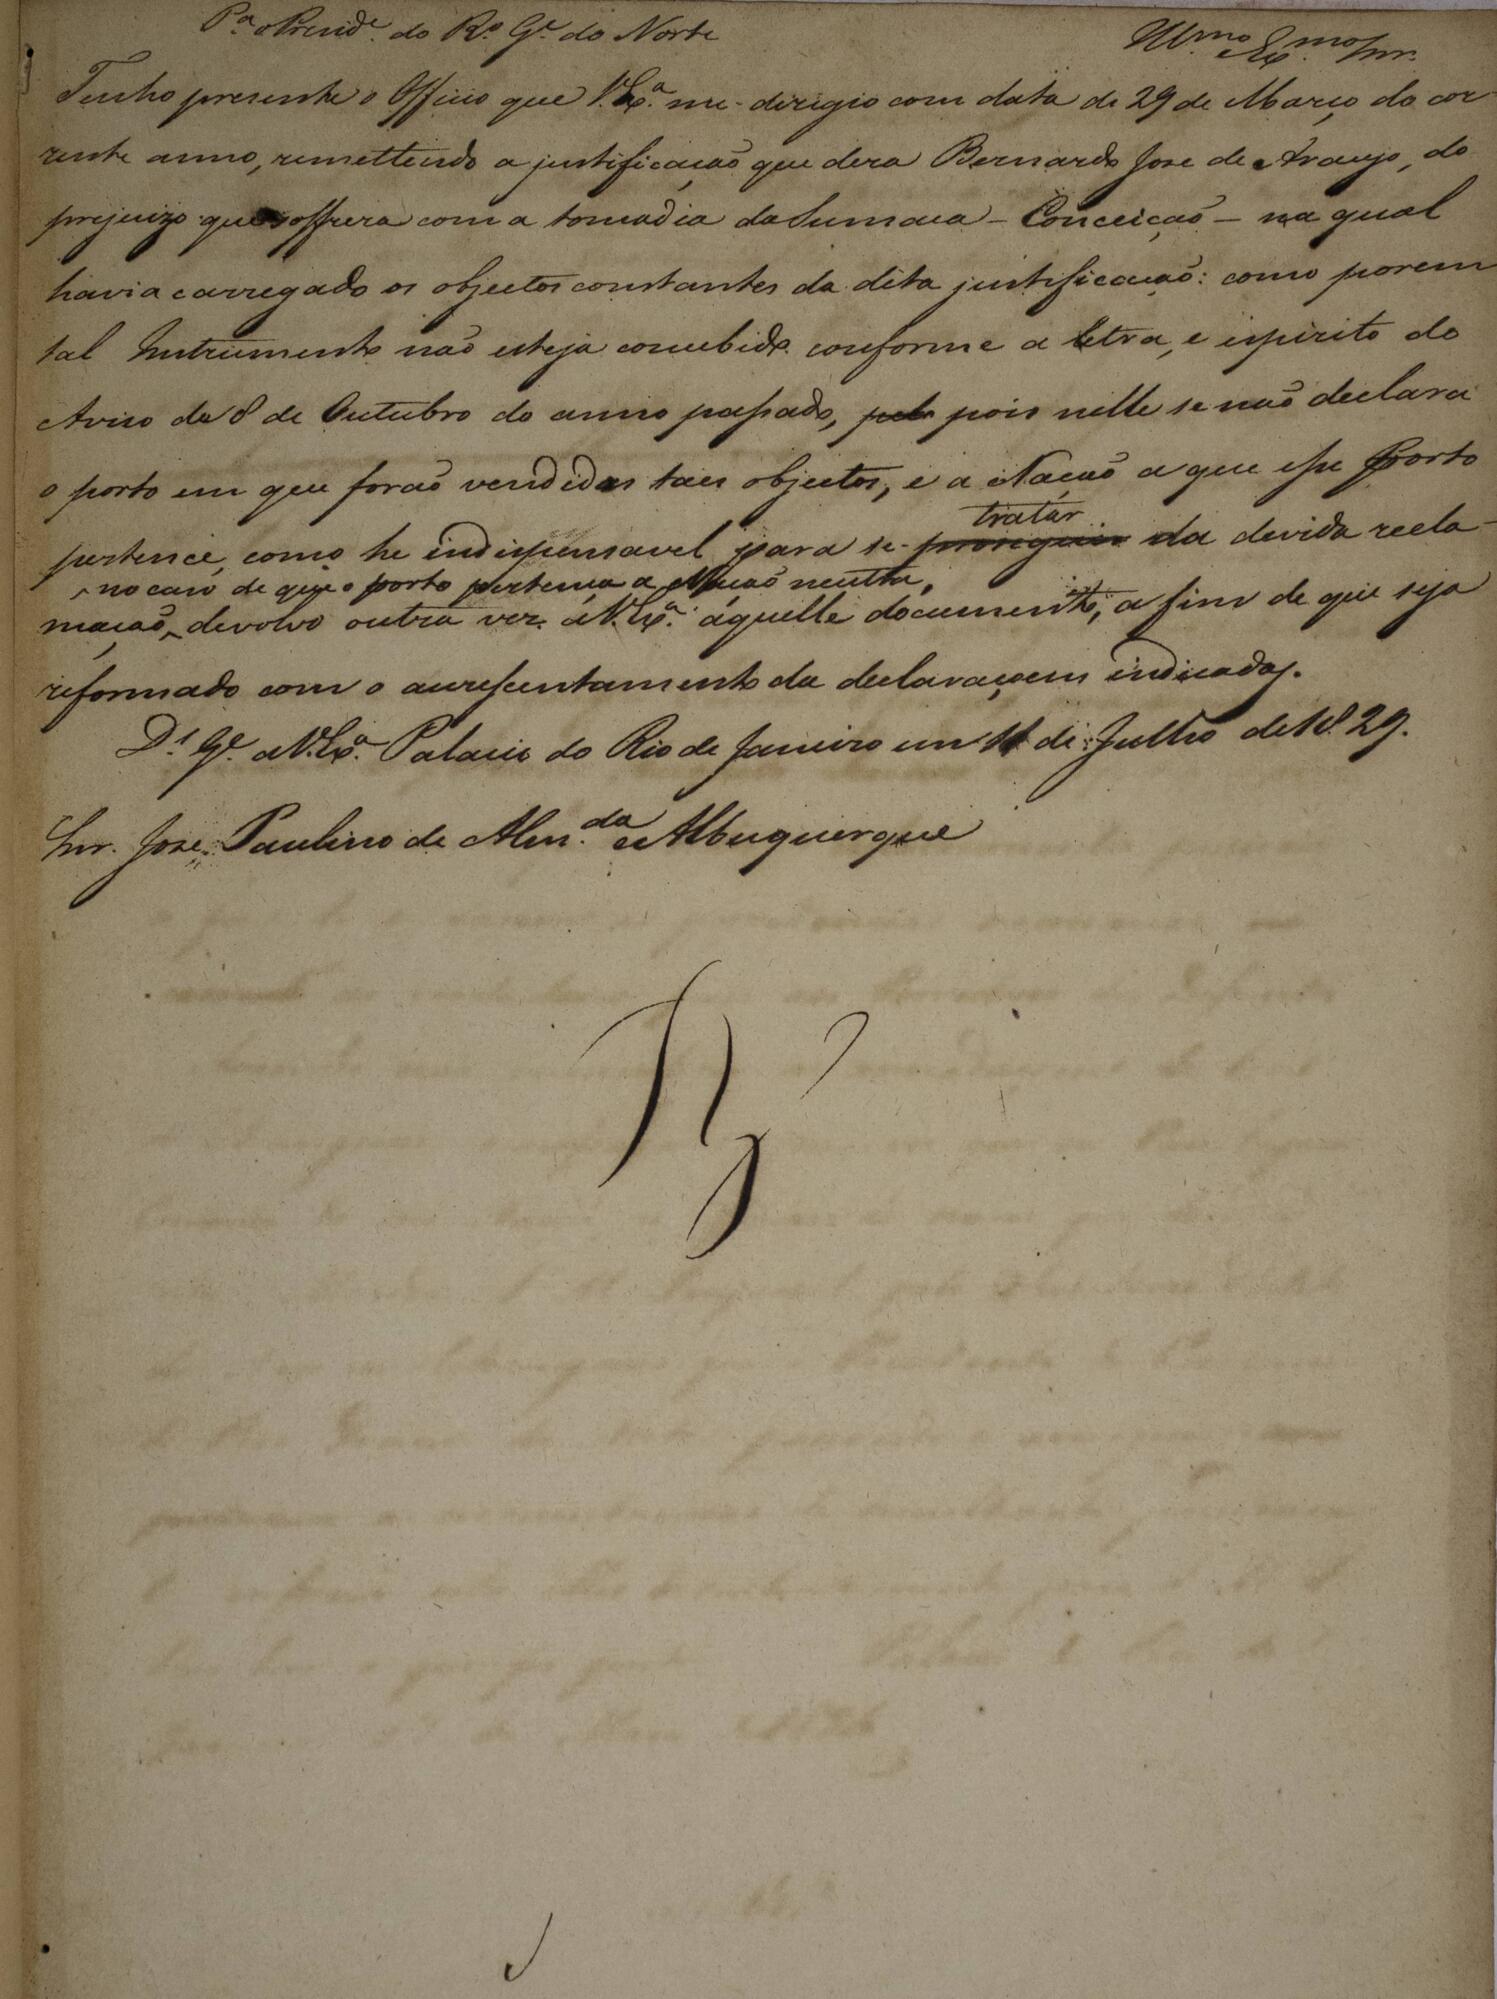 P.ª o Presid.e do R.º G.e do Norte
Ill.mo Ex.mo Snr.
Tenho presente o Officio que V. Ex.ª me dirigio com data de 29 de Março do cor-
rente anno, remettendo a justificação que dera Bernardo Jose de Araujo, do
prejuizo que soffrera com a tomadia da Sumaca – Conceição – na qual
havia carregado os objectos constantes da dita justificação: como porem
tal Instrumento não esteja concebido conforme a letra, e espirito do
Aviso de 8 de Outubro do anno passado, pelo pois nelle se não declara
o porto em que forão vendidos taes objectos, e a Nação a que esse porto
tratar
pertence, como he indispensavel para se proseguir da devida recla-
no caso de que o porto pertença a Nação neutra,
mação, devolvo outra vez á V. Ex.ª áquelle documento, a fim de que seja
reformado com o accrescentamento da declaraçoens indicadas.
D.s G.e a V. Ex.ª Palacio do Rio de Janeiro em 11 de Julho de 1829.
Snr. Jose Paulino de Alm.da e Albuquerque